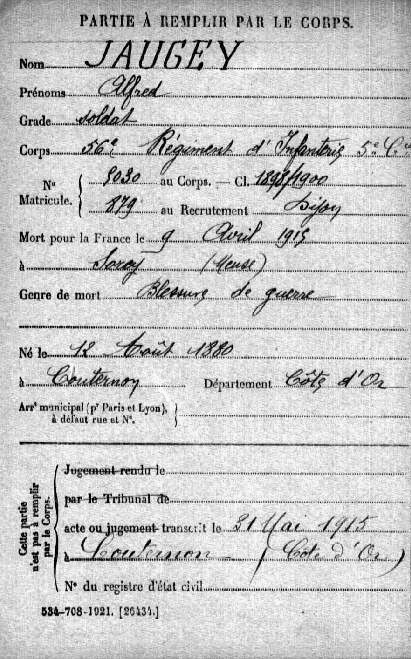 PARTIE À REMPLIR PAR LE CORPS.
Nom JAUGEY
Prénoms Alfred
Grade soldat
Corps 56e Régiment d'Infanterie 5e Cie
N° Matricule. { 9030 au Corps. — Cl. 1898/1900
879 au Recrutement Dijon
Mort pour la France le 9 Avril 1915
à (Meuse)
Genre de mort Blessures de guerre
Né le 12 Août 1880
à Couternon Département Côte d'Or
Arrt municipal (pr Paris et Lyon), à défaut rue et N°. }
Cette partie n'est pas à remplir par le Corps.
Jugement rendu le
par le Tribunal de
acte ou jugement transcrit le 21 Mai 1915
à Couternon (Côte d'Or)
N° du registre d'état civil
534-708-1921. [26434.]